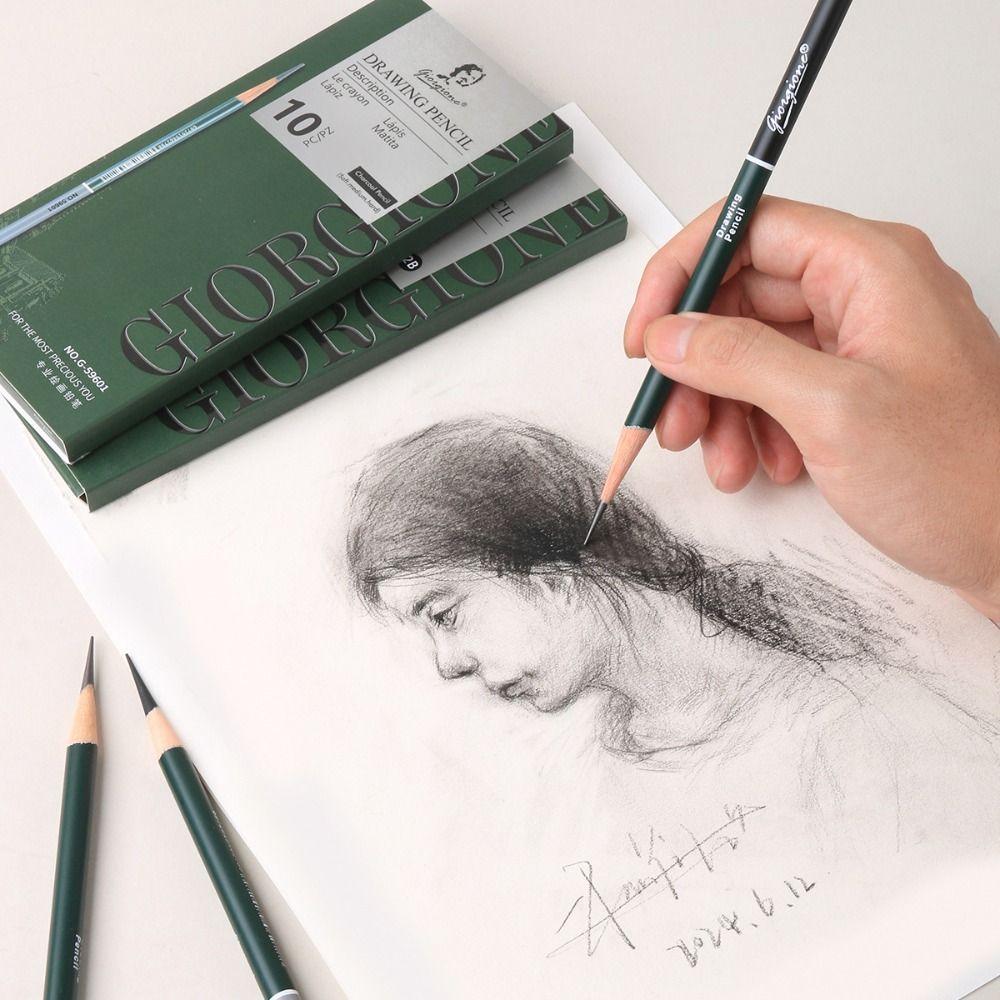 Giorgione®
DRAWING PENCIL
Description
Le crayon
Lápiz
Lápis
Matita
10 PC/PZ
Charcoal Pencil
(Soft, medium, hard)
NO.59601
GIORGIONE
FOR THE MOST PRECIOUS YOU
NO.G-59601
专业绘画铅笔
CIL
2B
GIORGIONE
Giorgione®
Drawing
Pencil
Pencil
2024.6.12